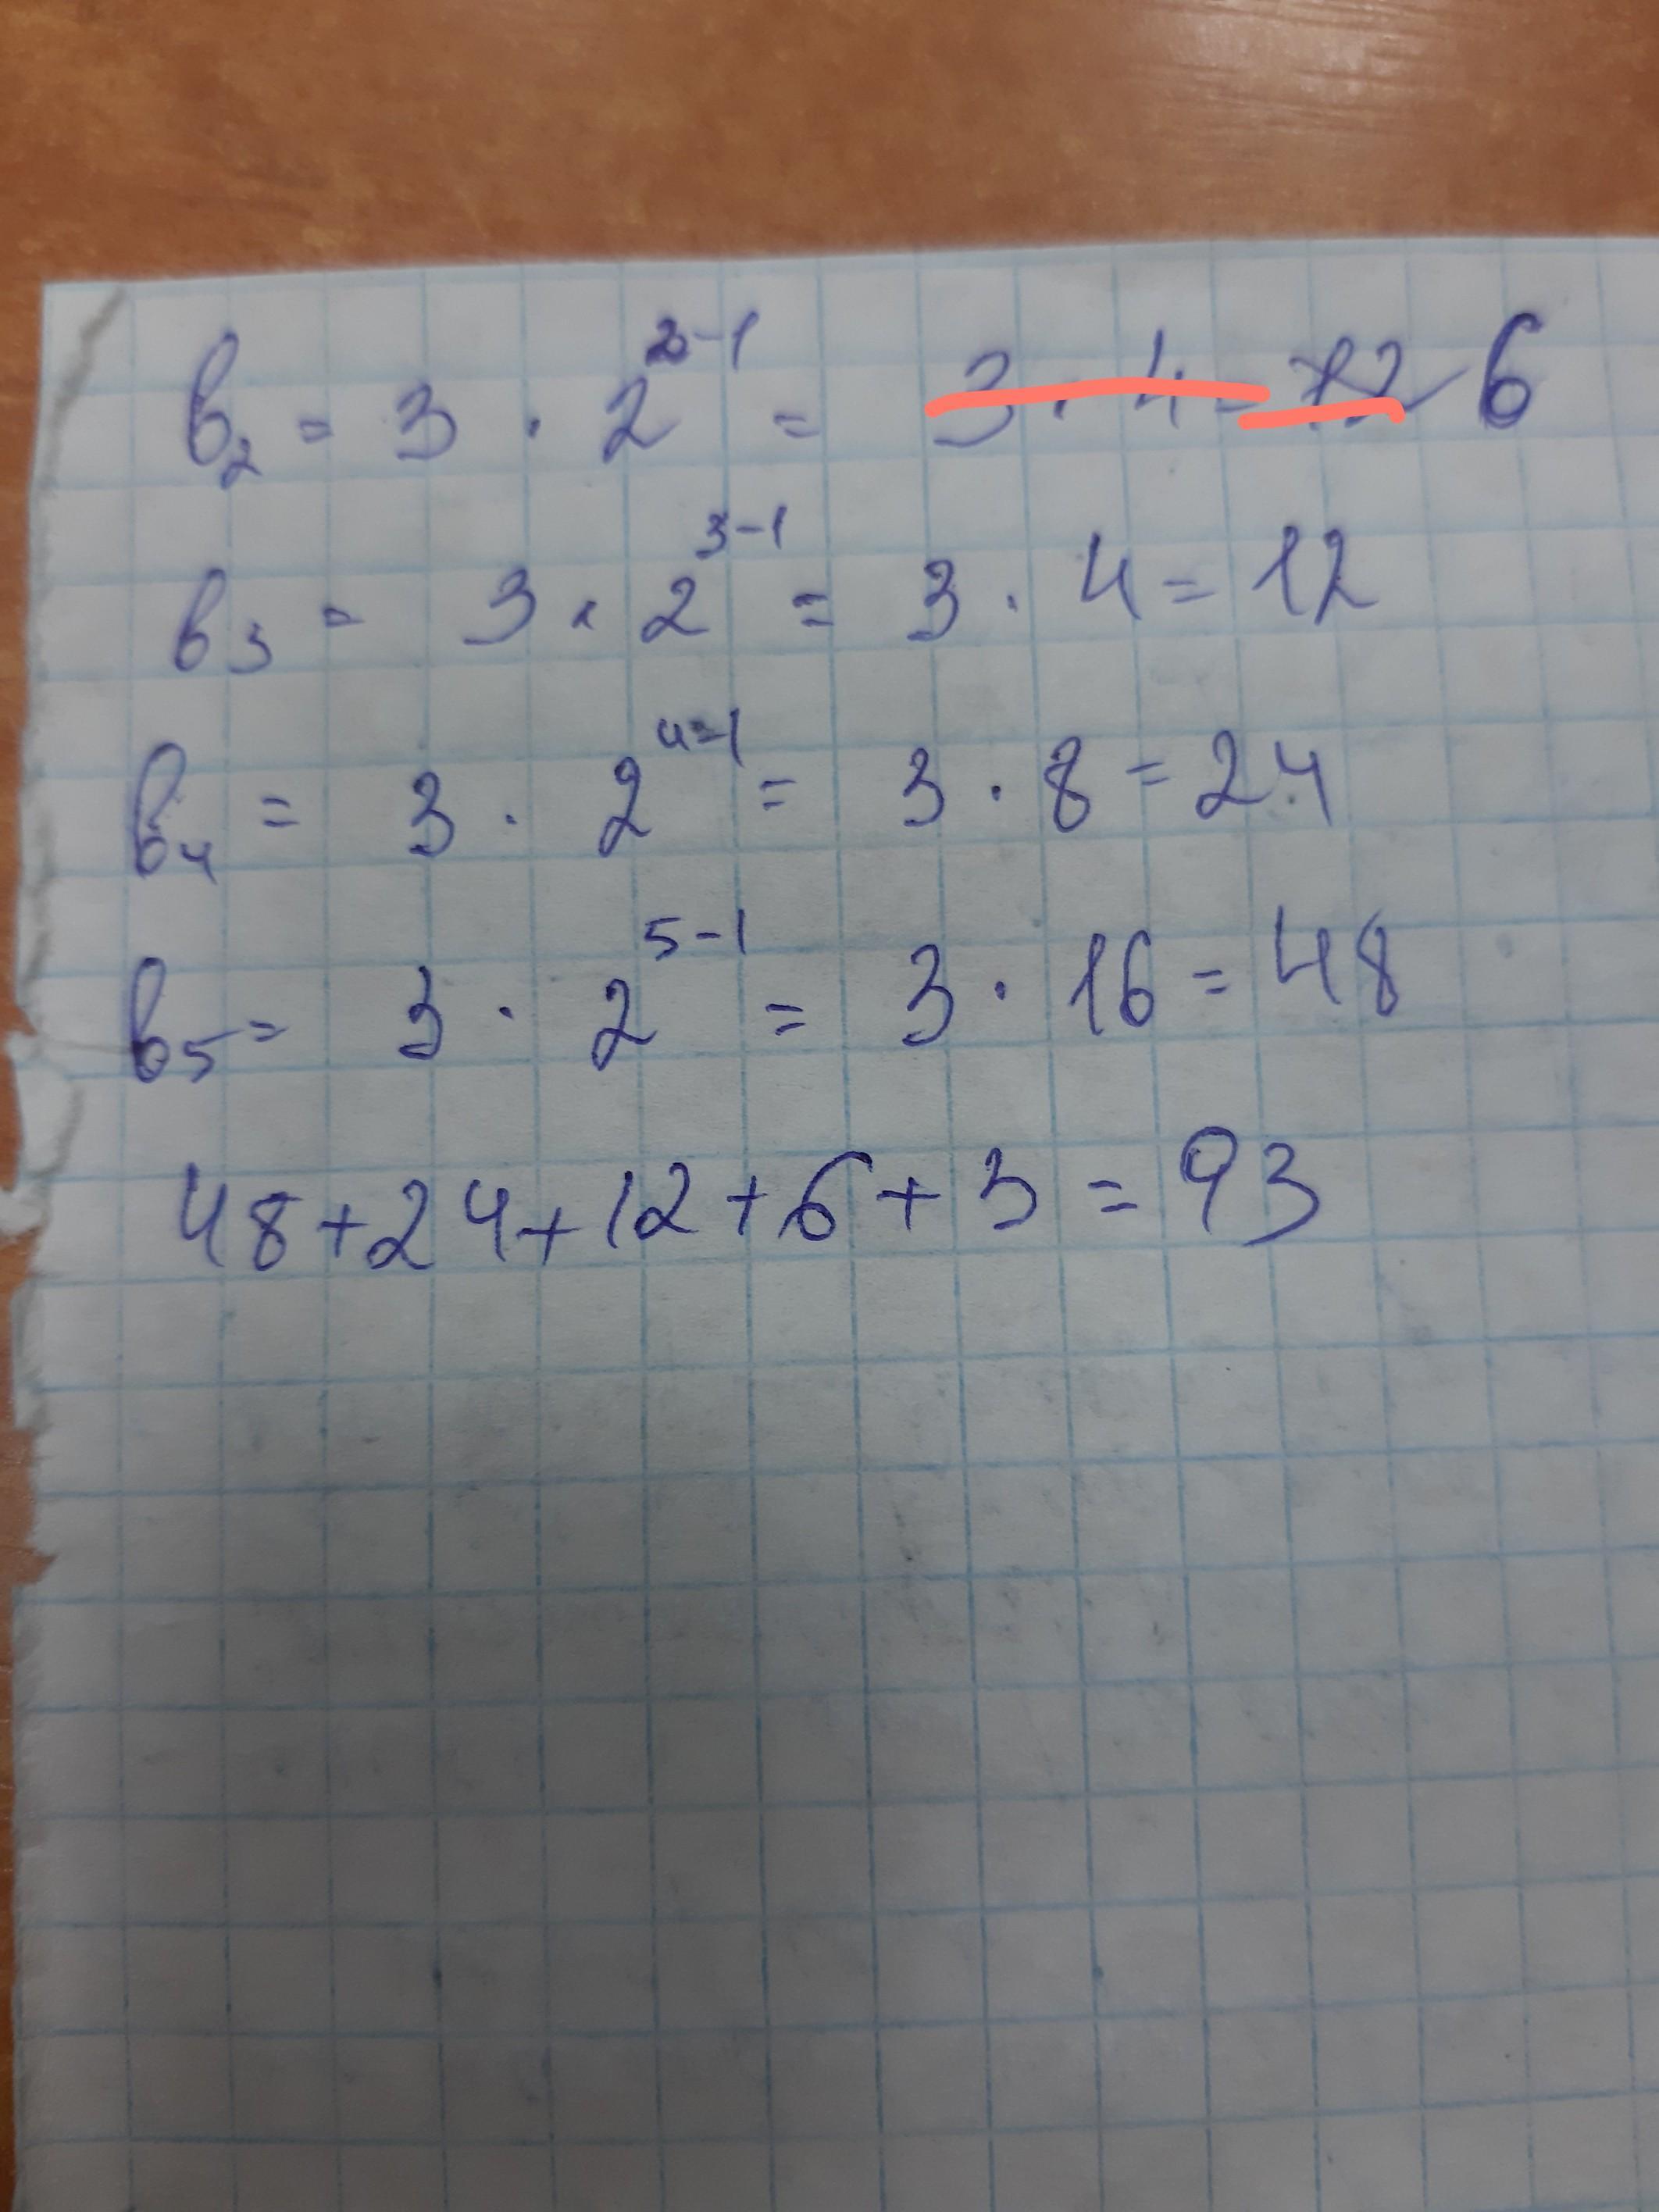 b₂ = 3 · 2²⁻¹ = 3 · 4 = 12 6
b₃ = 3 · 2³⁻¹ = 3 · 4 = 12
b₄ = 3 · 2⁴⁻¹ = 3 · 8 = 24
b₅ = 3 · 2⁵⁻¹ = 3 · 16 = 48
48+24+12+6+3 = 93